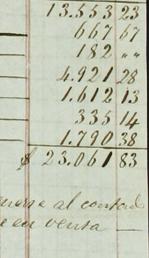 13.553 23
667 67
182 " "
4.921 28
1.612 13
335 14
1.790 38
$ 23.061 83
al contado
e en venta —